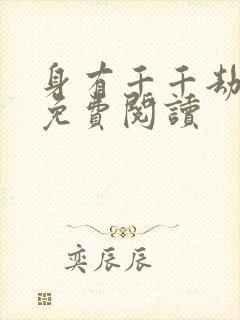 身有千千劫
免費閱讀
奕辰辰